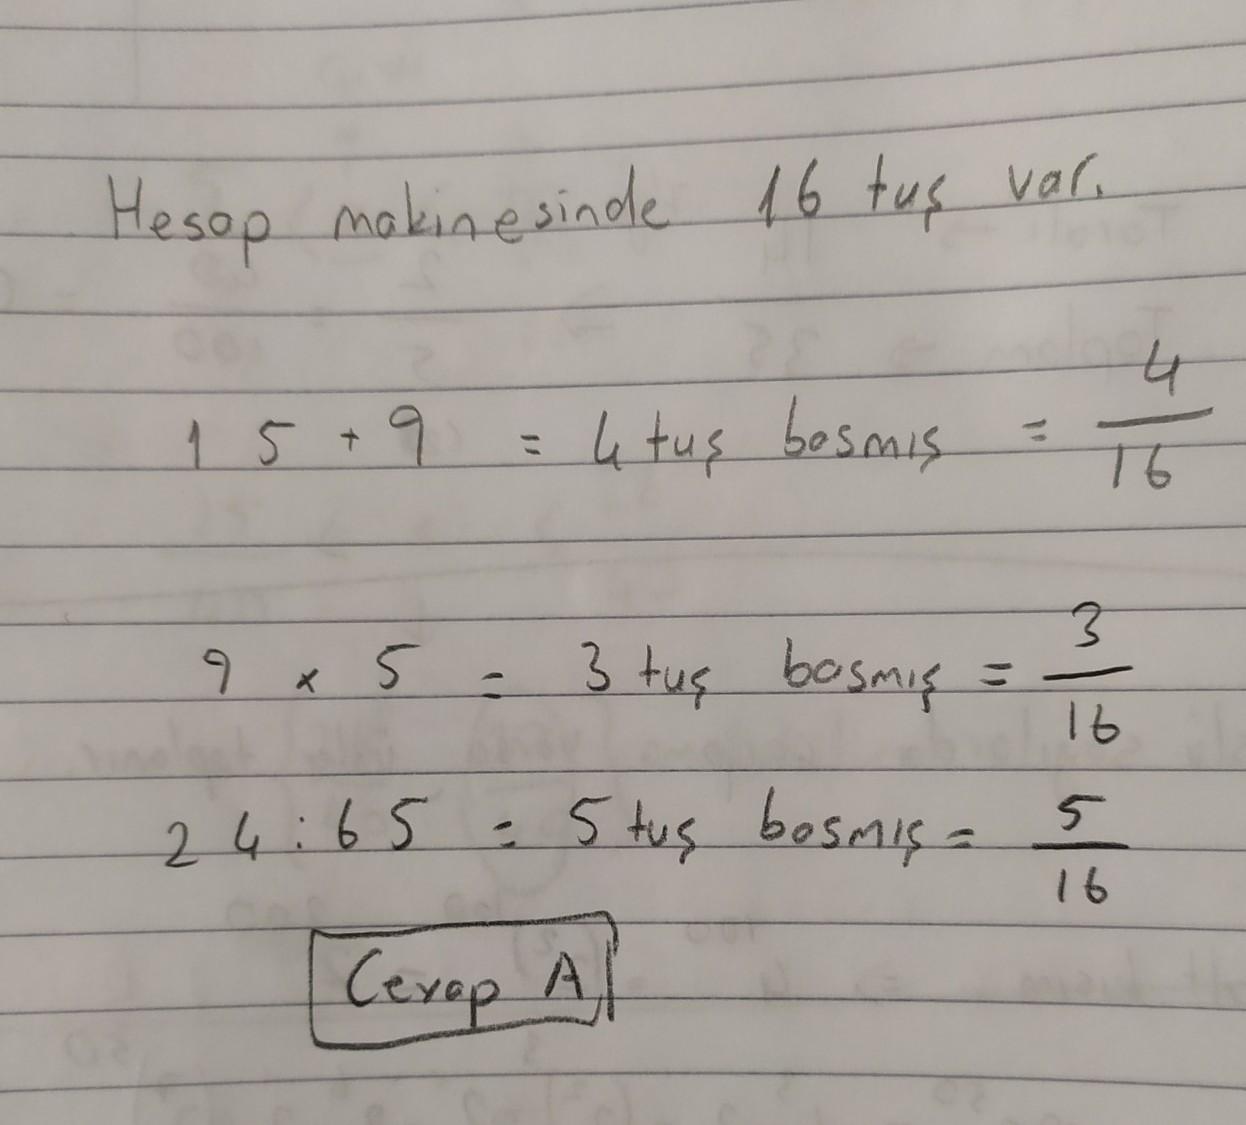 Hesap makinesinde 16 tuş var.
15 + 9 = 4 tuş basmış = 4/16
9 x 5 = 3 tuş basmış = 3/16
24 : 65 = 5 tuş basmış = 5/16
Cevap A